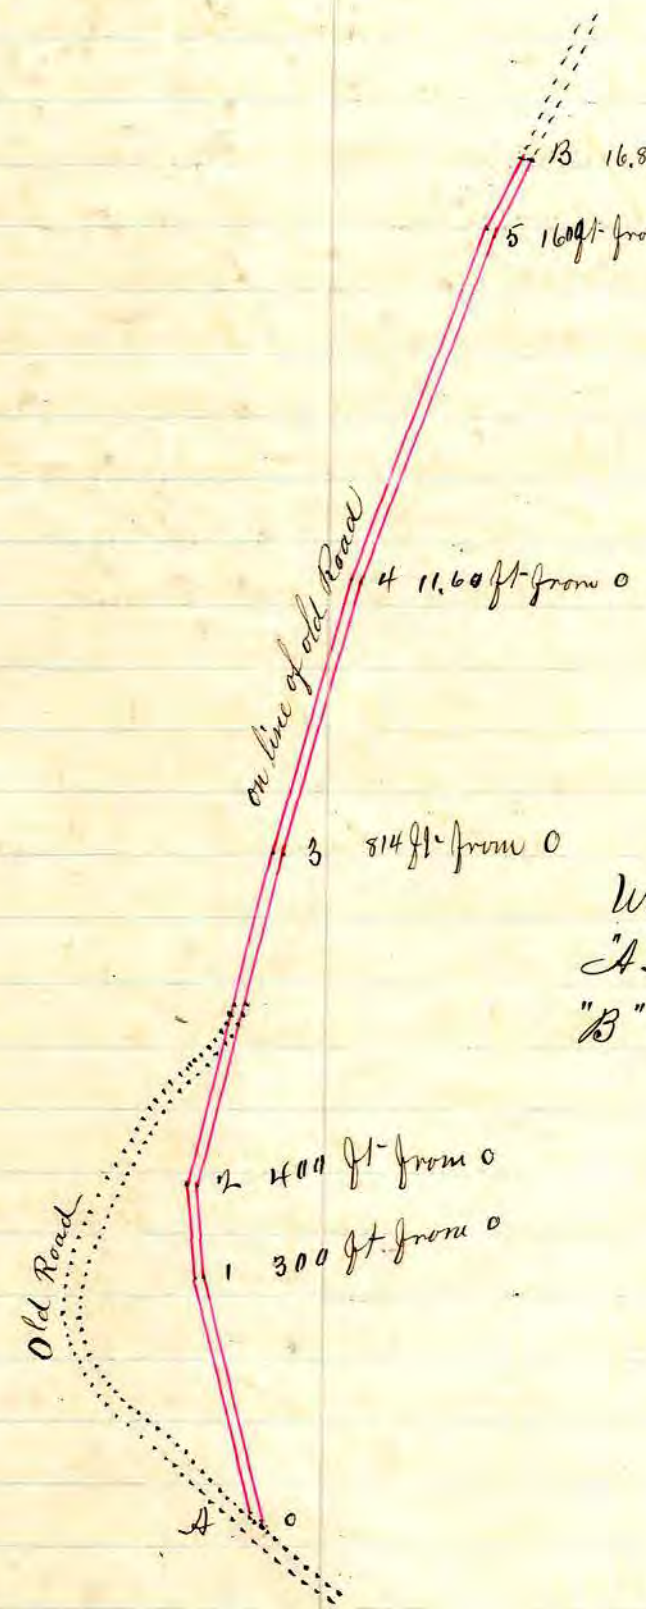 B 16.8
5 1600 ft fro
on line of old Road
4 11.60 ft from 0
3 814 ft from 0
W
"A
"B"
2 400 ft from 0
1 300 ft. from 0
Old Road
A 0